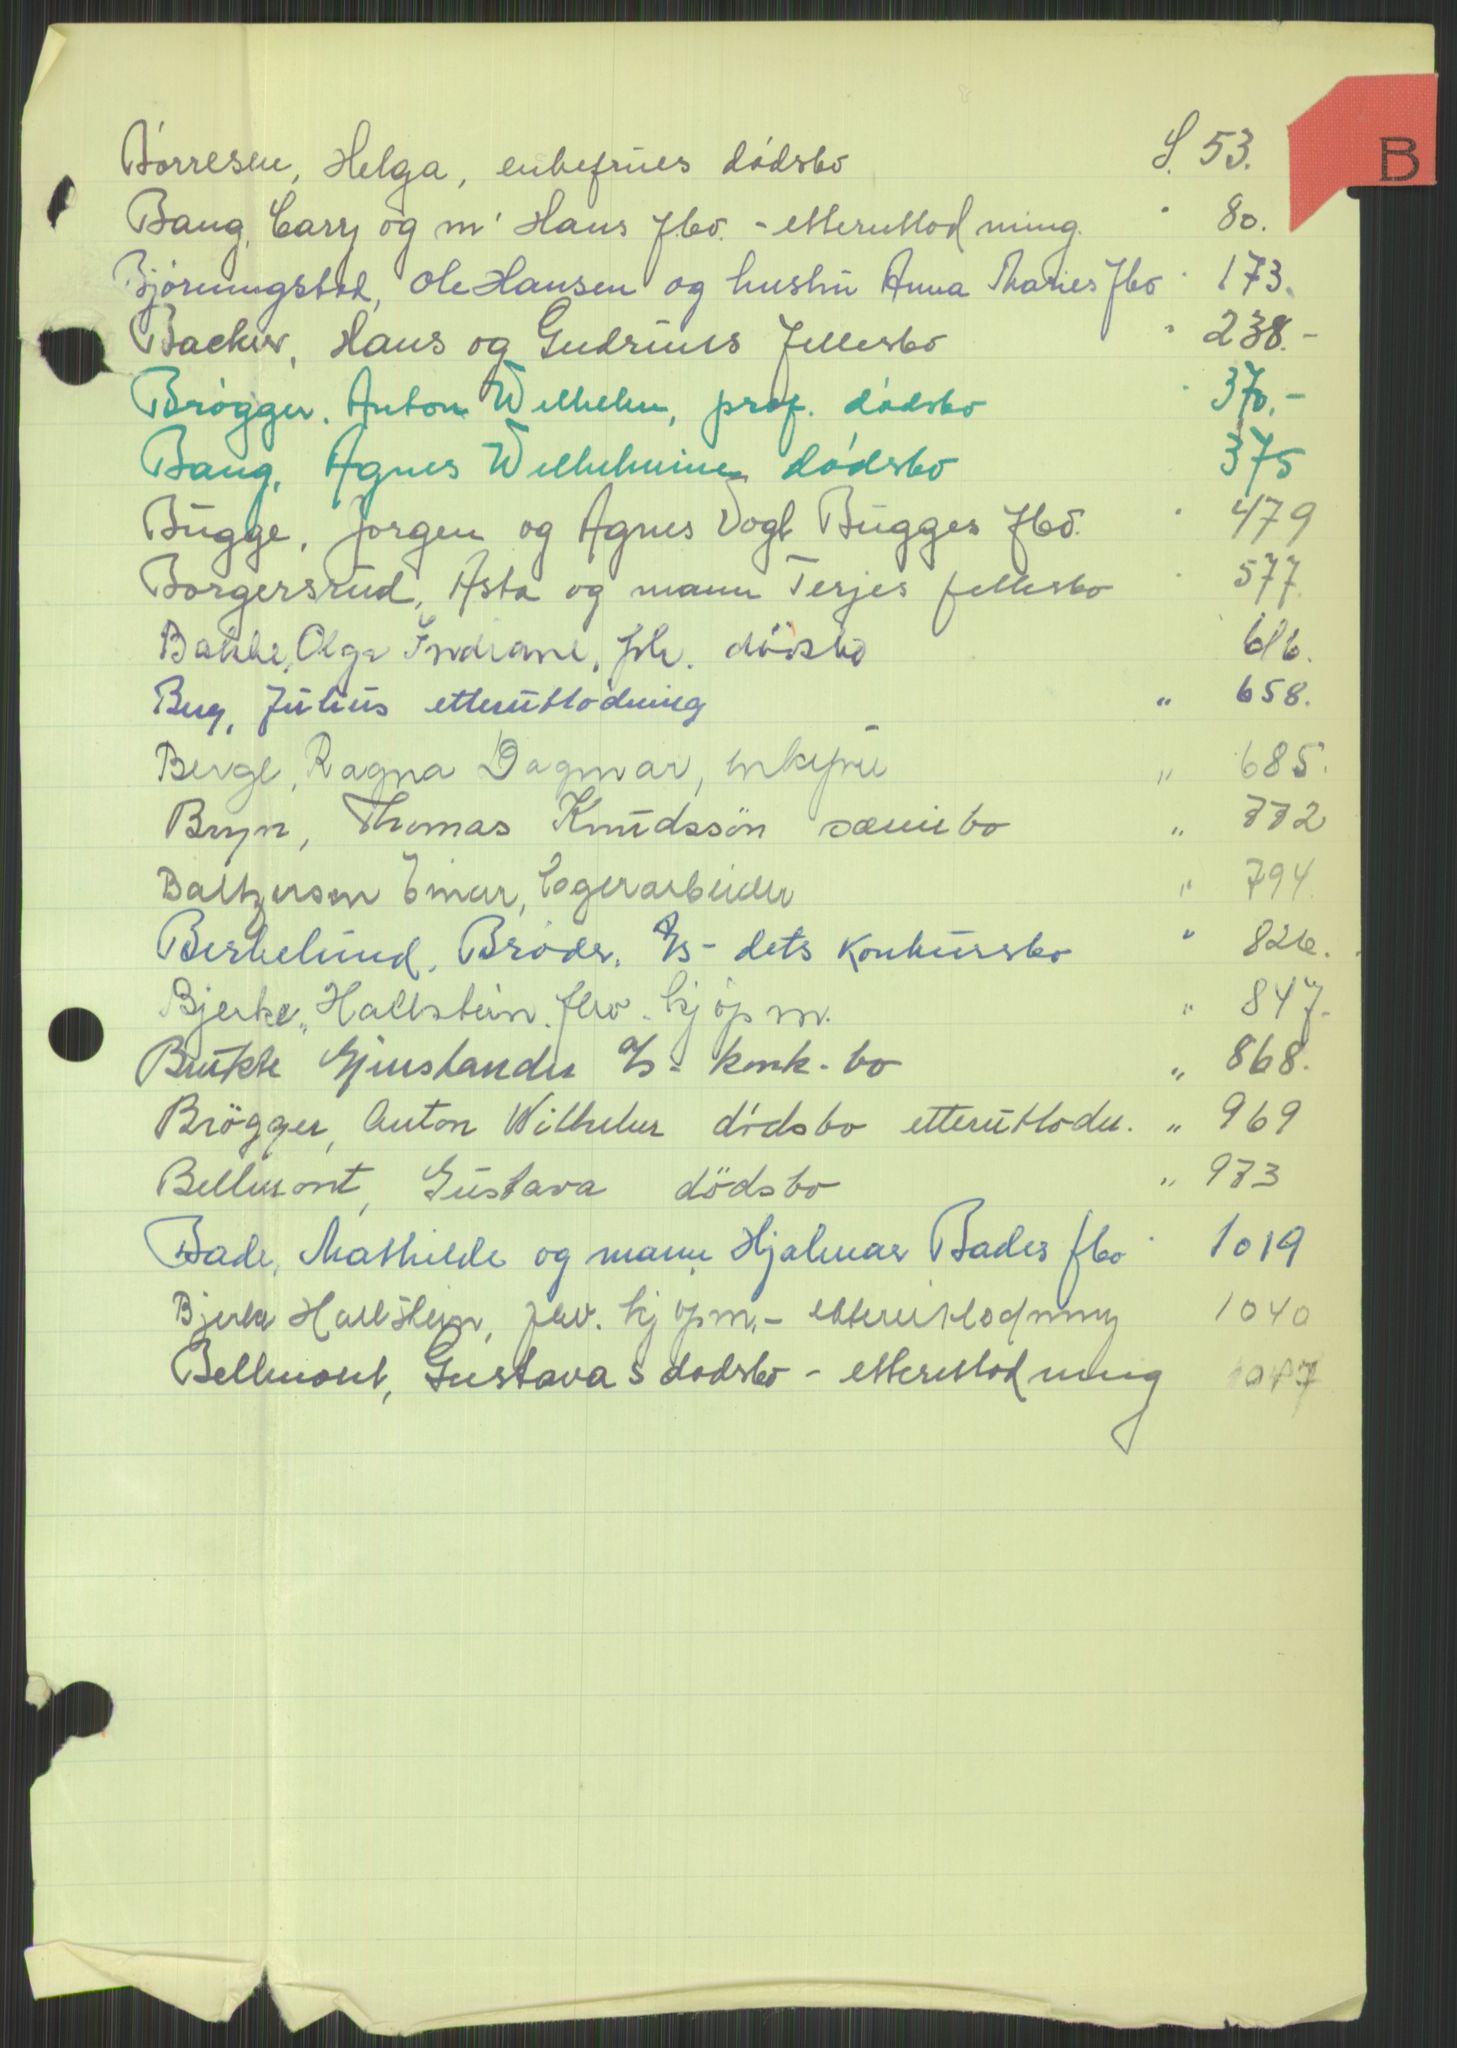 B
Børresen, Helga, enkefrues dødsbo S. 53.
Bang, Carry og m' Hans fbo. - etterutlodning. " 80.
Bjørnungstad, Ole Hansen og hustru Anna Maries fbo " 173.
Backer, Hans og Gudruns fellesbo " 238.-
Brøgger. Anton Wilhelm, prof. dødsbo " 370.-
Bang, Agnes Wilhelmines dødsbo 375
Bugge, Jørgen og Agnes Vogt Bugges fbo. " 479
Borgersrud, Asta og mann Terjes fellesbo " 577.
Bakke, Olga Indiane, frk. dødsbo 616.
Berg, Julius etterutlodning " 658.
Berge, Ragna Dagmar, enkefrue " 685.
Bryn, Thomas Knudssön særeie bo " 772
Baltzersen Einar, lagerarbeider " 794.
Berkelund, Brødr. A/S - dets konkursbo " 826.
Bjerke, Hallstein. fhv. kjøpm. " 847.
Brukte Gjenstander A/S - konk. bo " 868.
Brögger, Anton Wilhelm dødsbo etterutlodn. " 969
Bellmont, Gustava dödsbo " 973
Bade, Mathilde og mann Hjalmar Bades fbo " 1019
Bjerke Hallstein, fhv. kjøpm. - etterutlodning 1040
Bellmont, Gustavas dødsbo - etterutlodning